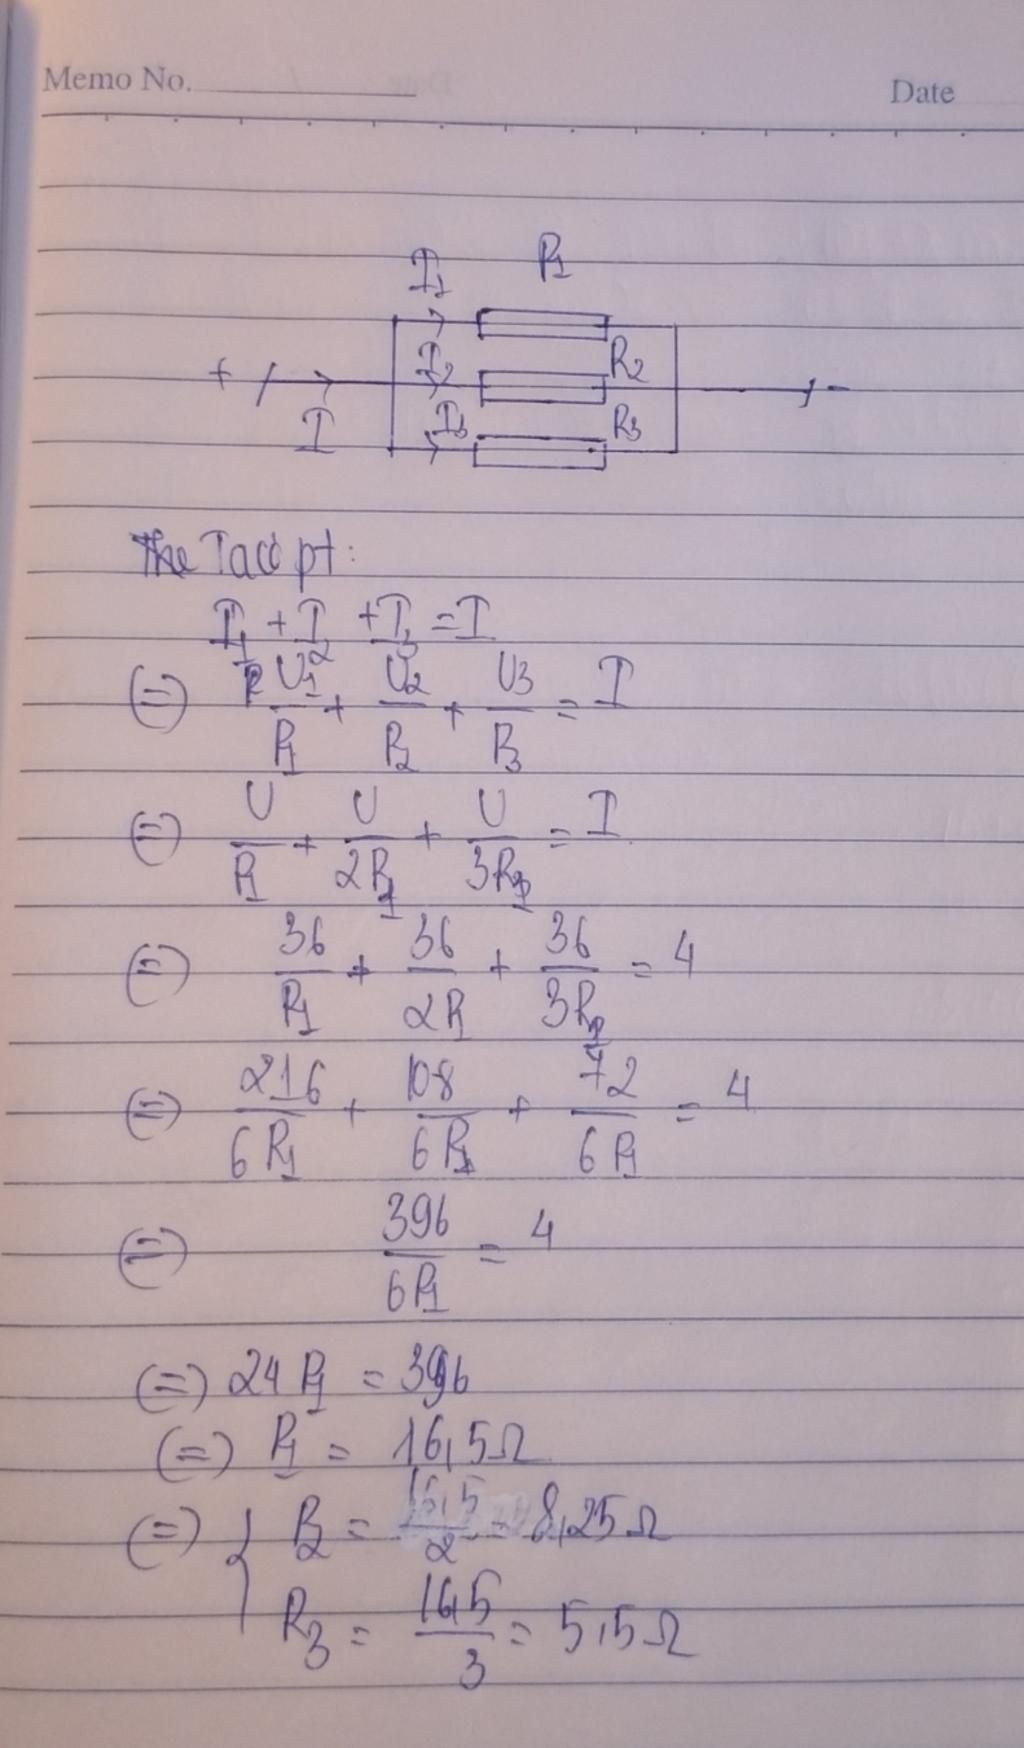 Memo No. Date
I₁ R₁
I₂ R₂
+ -
I I₃ R₃
The Tacó pt:
I₁ + I₂ + I₃ = I
(=) U₁/R₁ + U₂/R₂ + U₃/R₃ = I
(=) U/R₁ + U/2R₁ + U/3R₁ = I
(=) 36/R₁ + 36/2R₁ + 36/3R₁ = 4
(=) 216/6R₁ + 108/6R₁ + 72/6R₁ = 4
(=) 396/6R₁ = 4
(=) 24R₁ = 396
(=) R₁ = 16,5Ω
(=) { R₂ = 16,5/2 = 8,25Ω
R₃ = 16,5/3 = 5,5Ω